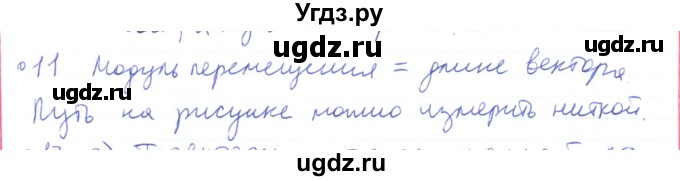 Угдз.ру
°11 Модуль перемещения = длине вектора
Путь на рисунке можно измерить ниткой.
Угдз.ру
ugdz.ru ugdz.ru ugdz.ru
ugdz.ru